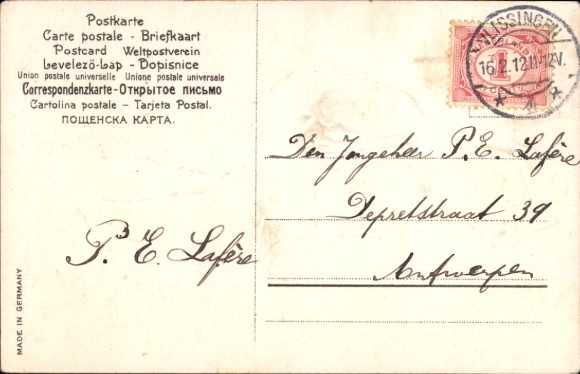 Postkarte
Carte postale - Briefkaart
Postcard Weltpostverein
Levelező-Lap - Dopisnice
Union postale universelle Unione postale universale
Correspondenzkarte - Открытое письмо
Cartolina postale - Tarjeta Postal.
ПОЩЕНСКА КАРТА.
VLISSINGEN
16.2.12.11-12V.
NEDERLAND
1
Den Jongeheer P. E. Lafère
Depretstraat 39
Antwerpen
P. E. Lafère
MADE IN GERMANY